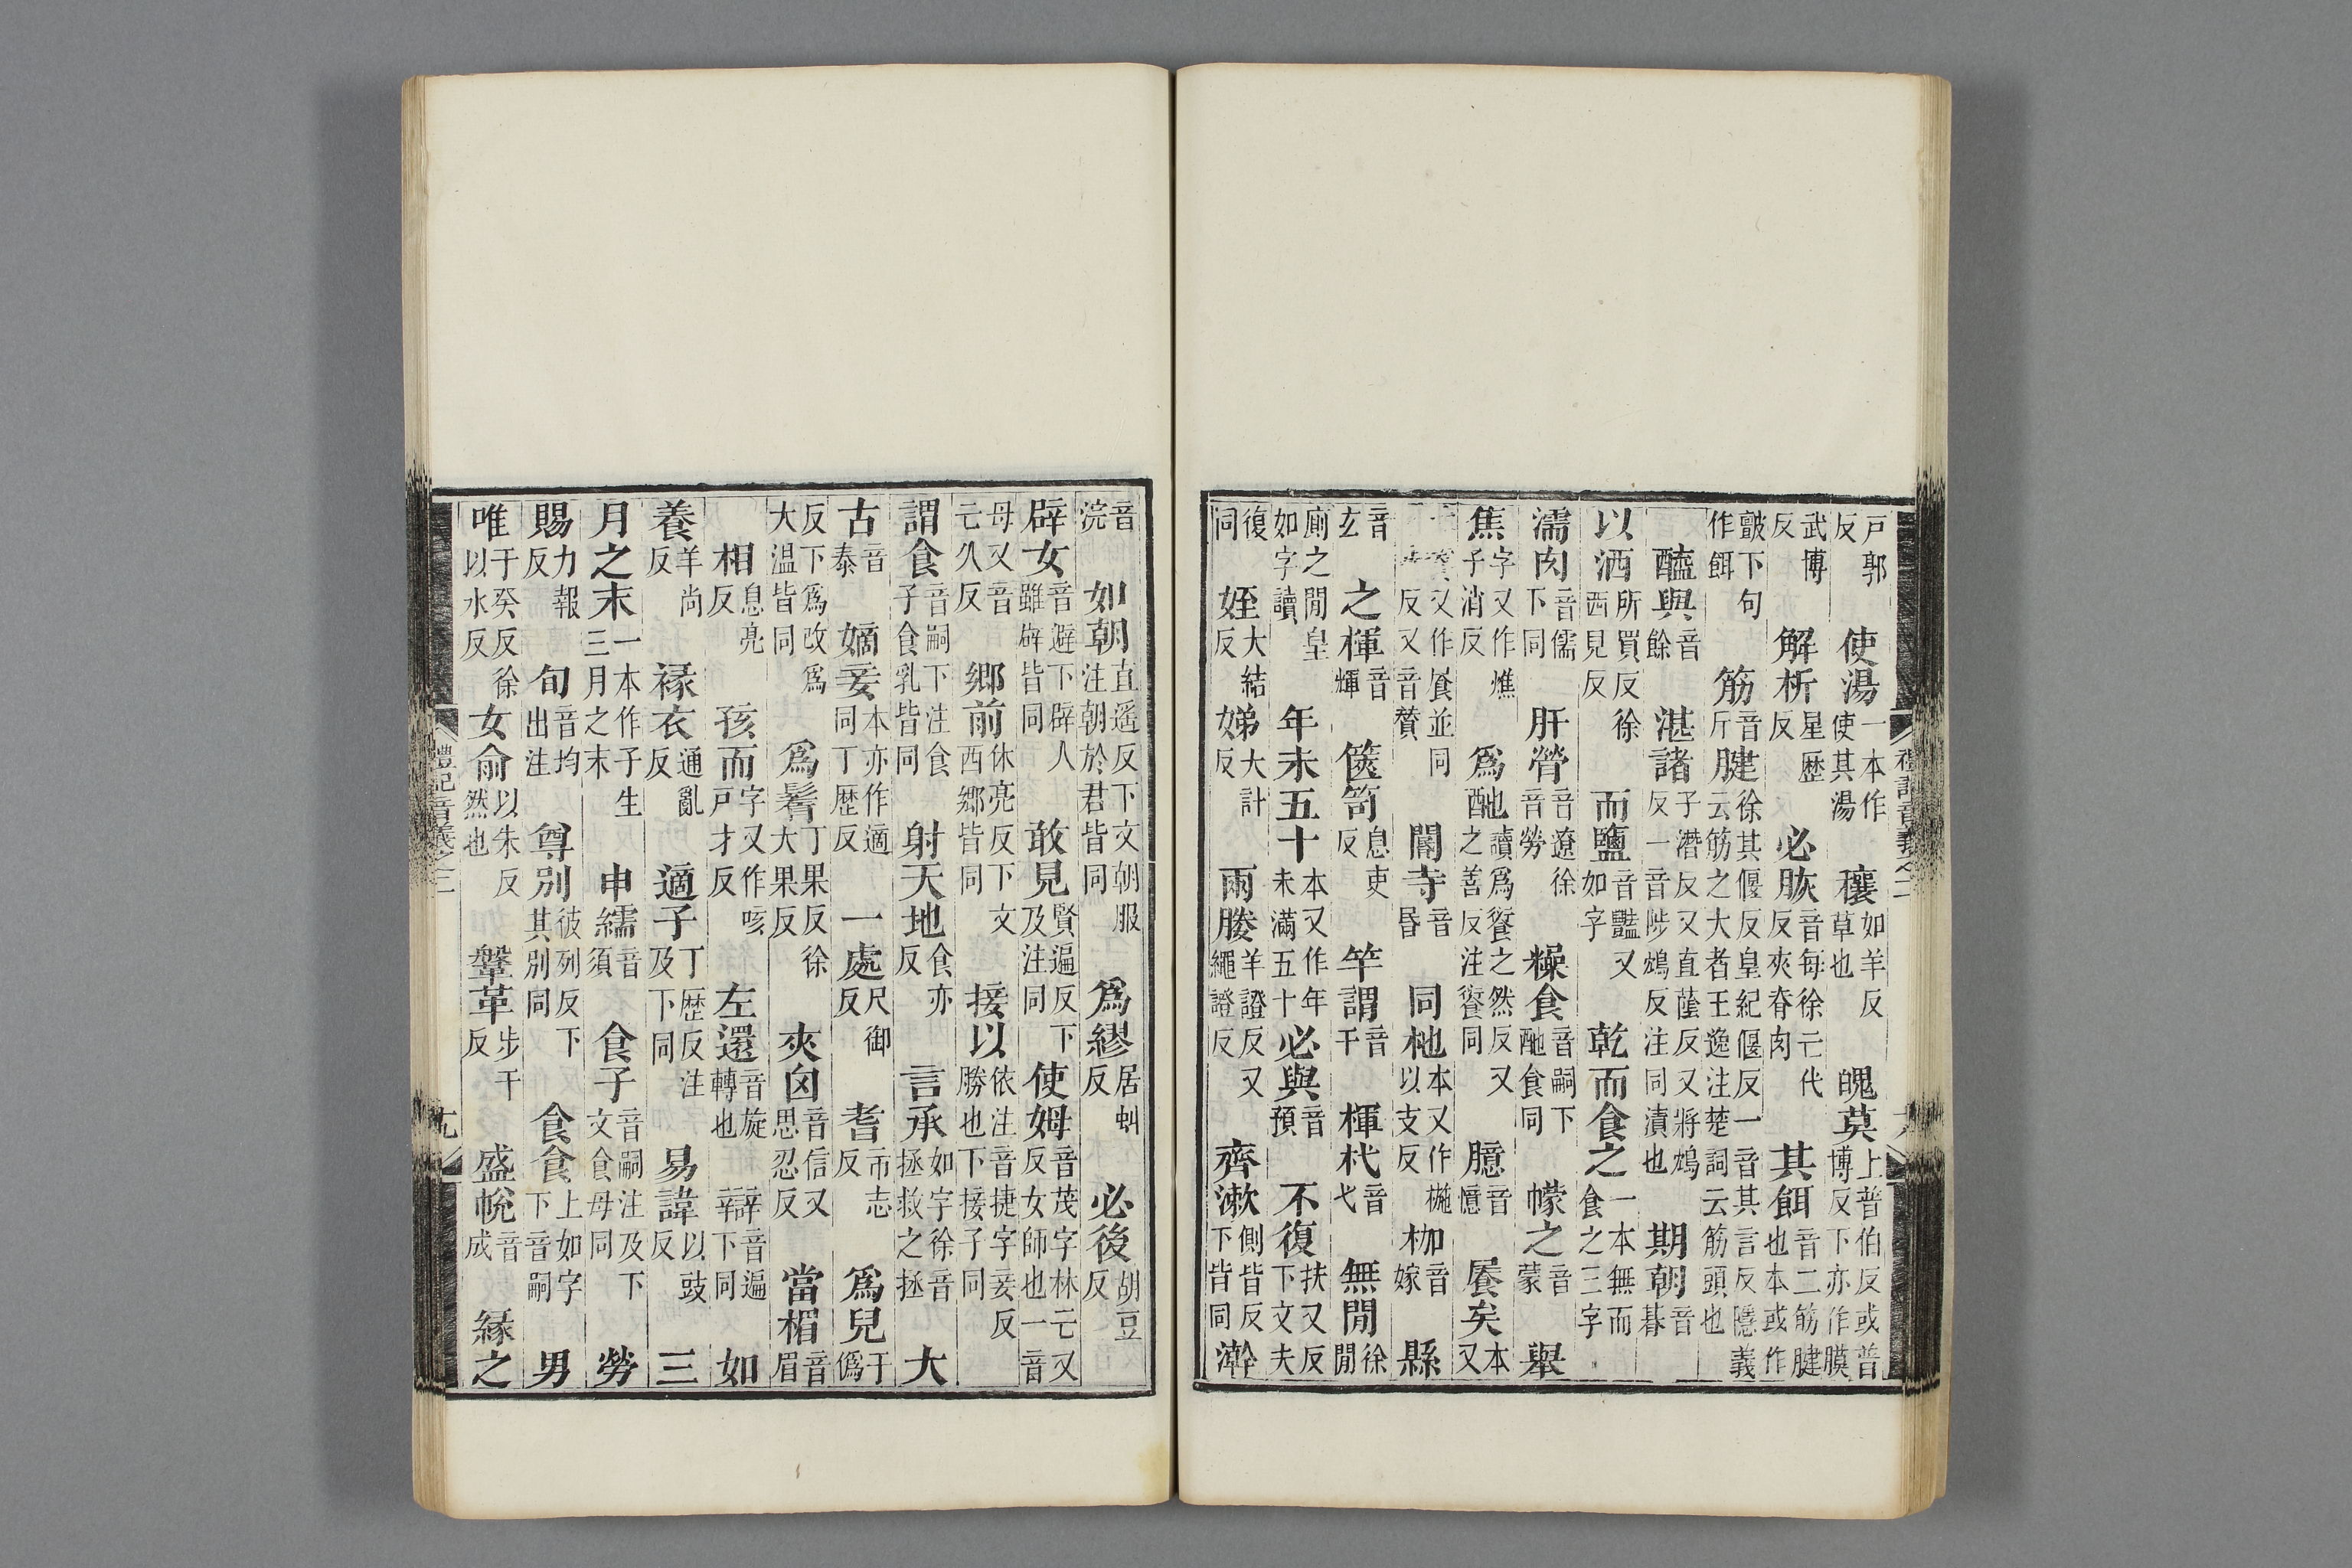 戸郭反 使湯一本作使其湯 穰如羊反草也 魄莫上普伯反或普博反下亦作膜
武博反 解析星歷反 必脄音每徐亡代反夾脊肉 其餌音二筋腱也本或作
皷下句作餌 筋音斤 腱徐其偃反皇紀偃反一音其言反隱義云筋之大者王逸注楚詞云筋頭也
醢與音餘 湛諸子潛反又直蔭反又將鴆反一音陟鴆反注同漬也 期朝音朞
以洒所買反徐西見反 而鹽音豔又如字 乾而食之一本無而食之三字
濡肉音儒下同 肝膋音遼徐音勞 糁食音嗣下酏食同 幪之音蒙 舉
焦字又作燋子消反 爲酏讀爲餰之然反又之善反注餰同 臆音憶 饜矣本又
反又音贊 閽寺音昏 同杝本又作椸以支反 枷音嫁 縣
音玄 之楎音輝 篋笥息吏反 竿謂音干 楎杙音弋 無閒徐閒
廁之閒皇如字讀 年未五十本又作年未滿五十 必與音預 不復扶又反下文夫
復同 姪大結反 娣大計反 兩媵羊證反又繩證反 齊漱側皆反下皆同 澣
禮記音義之二
音浣 如朝直遥反下文朝服注朝於君皆同 爲繆居虯反 必後胡豆反
辟女音避下辟人雖辟皆同 敢見賢遍反下及注同 使姆音茂字林亡又反女師也一音
母又音亡久反 鄉前休亮反下文西鄉皆同 接以依注音捷字妾反勝也下接子同
謂食音嗣下注食子食乳皆同 射天地食亦反 言承如字徐音拯救之拯 大
古音泰 嫡妾本亦作適同丁歷反 一處尺御反 耆市志反 爲兒于僞
反下爲改爲大温皆同 爲鬌丁果反徐大果反 夾囟音信又思忍反 當楣音眉
相息亮反 孩而字又作咳戸才反 左還音旋轉也 辯音遍下同 如
養羊尚反 褖衣通亂反 適子丁歷反注及下同 易諱以豉反 三
月之末一本作子生三月之末 申繻音須 食子音嗣注及下文食母同 勞
賜力報反 旬音均出注 尊別彼列反下其別同 食食上如字下音嗣 男
唯于癸反徐以水反 女俞以朱反然也 鞶革步干反 盛帨音成 緣之
禮記音義之二